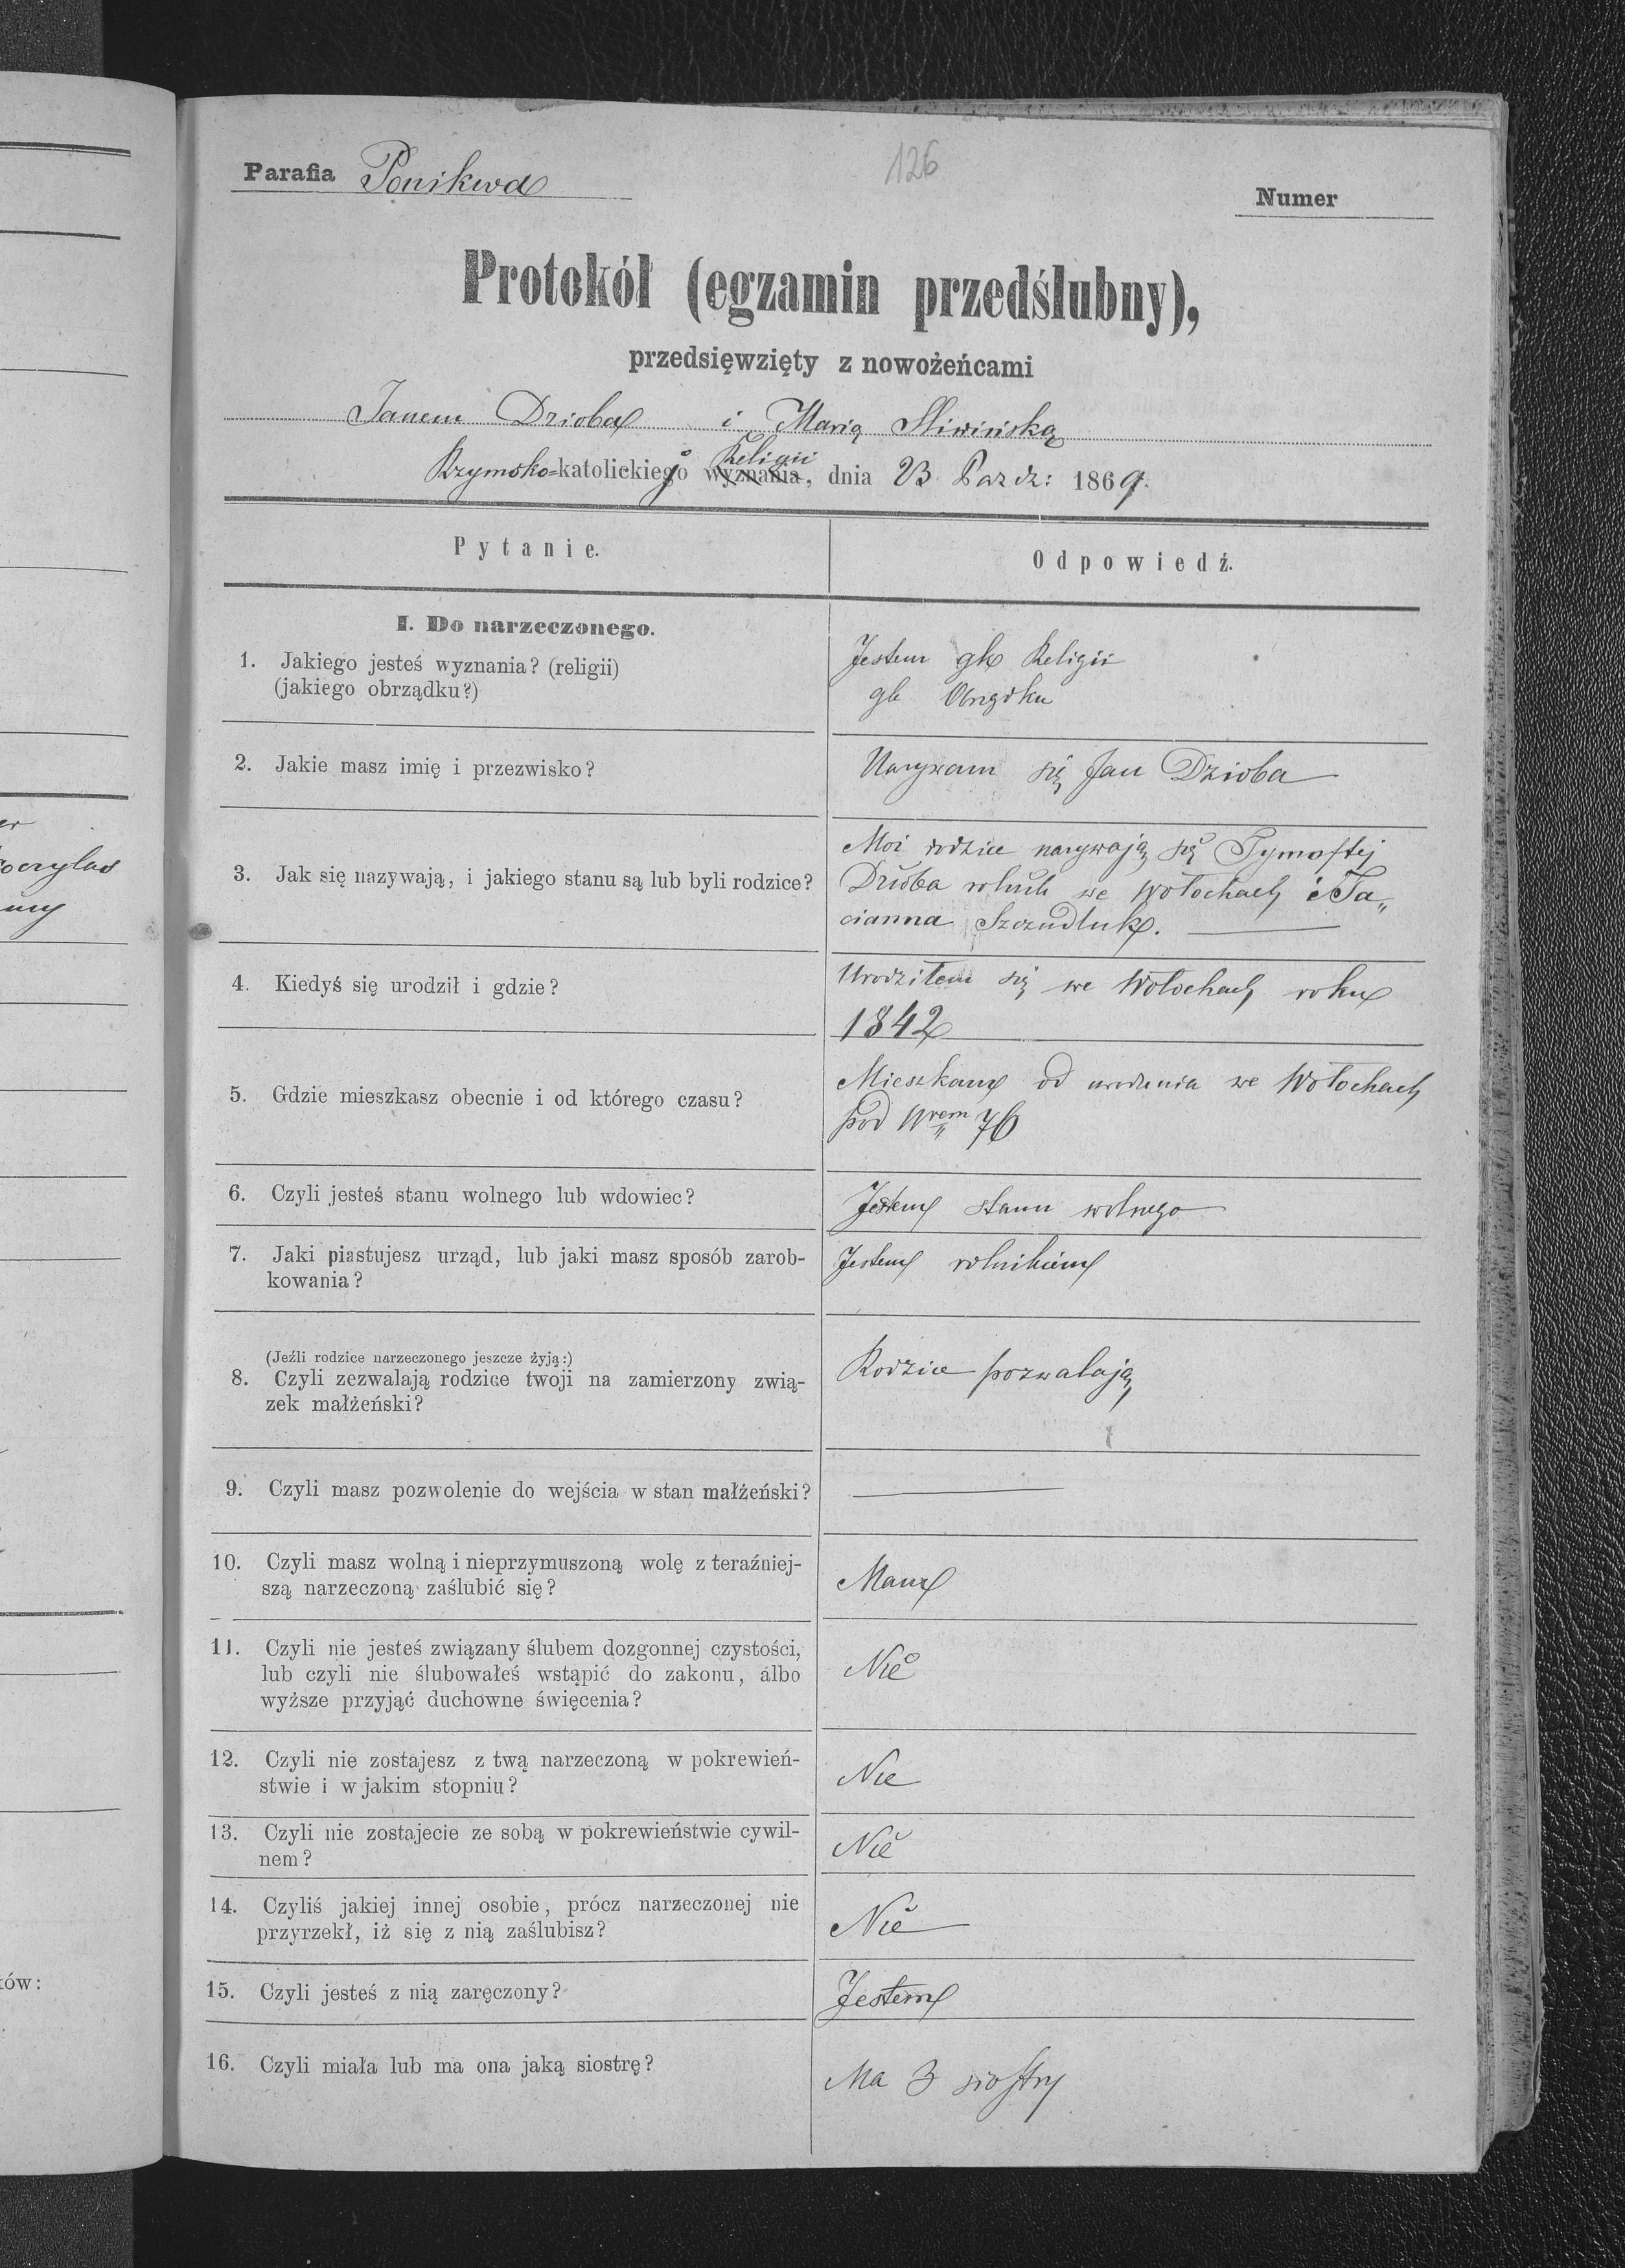 126
Parafia Ponikwa
Numer
Protokół (egzamin przedślubny),
przedsięwzięty z nowożeńcami
Janem Dzioba i Marią Sliwińską
Religii
Rzymsko=katolickiej wyznania, dnia 23 Pazdz: 1869.
Pytanie.
Odpowiedź.
I. Do narzeczonego.
1. Jakiego jesteś wyznania? (religii)
(jakiego obrządku?)
Jestem gk Religii
gk Obrządku
2. Jakie masz imię i przezwisko?
Nazywam się Jan Dzioba
3. Jak się nazywają, i jakiego stanu są lub byli rodzice?
Moi rodzice nazywają się Tymoftej
Dzioba rolnik we Wołochach i Ta„
cianna Szczudluk.
4. Kiedyś się urodził i gdzie?
Urodziłem się we Wołochach roku
1842
5. Gdzie mieszkasz obecnie i od którego czasu?
Mieszkam od urodzenia we Wołochach
pod Nrem 76
6. Czyli jesteś stanu wolnego lub wdowiec?
Jestem stanu wolnego
7. Jaki piastujesz urząd, lub jaki masz sposób zarob-
kowania?
Jestem rolnikiem
(Jeźli rodzice narzeczonego jeszcze żyją:)
8. Czyli zezwalają rodzice twoji na zamierzony zwią-
zek małżeński?
Rodzice pozwalają
9. Czyli masz pozwolenie do wejścia w stan małżeński?
10. Czyli masz wolną i nieprzymuszoną wolę z teraźniej-
szą narzeczoną zaślubić się?
Mam
11. Czyli nie jesteś związany ślubem dozgonnej czystości,
lub czyli nie ślubowałeś wstąpić do zakonu, albo
wyższe przyjąć duchowne święcenia?
Nie
12. Czyli nie zostajesz z twą narzeczoną w pokrewień-
stwie i w jakim stopniu?
Nie
13. Czyli nie zostajecie ze sobą w pokrewieństwie cywil-
nem?
Nie
14. Czyliś jakiej innej osobie, prócz narzeczonej nie
przyrzekł, iż się z nią zaślubisz?
Nie
15. Czyli jesteś z nią zaręczony?
Jestem
16. Czyli miała lub ma ona jaką siostrę?
Ma 3 siostry
ków: